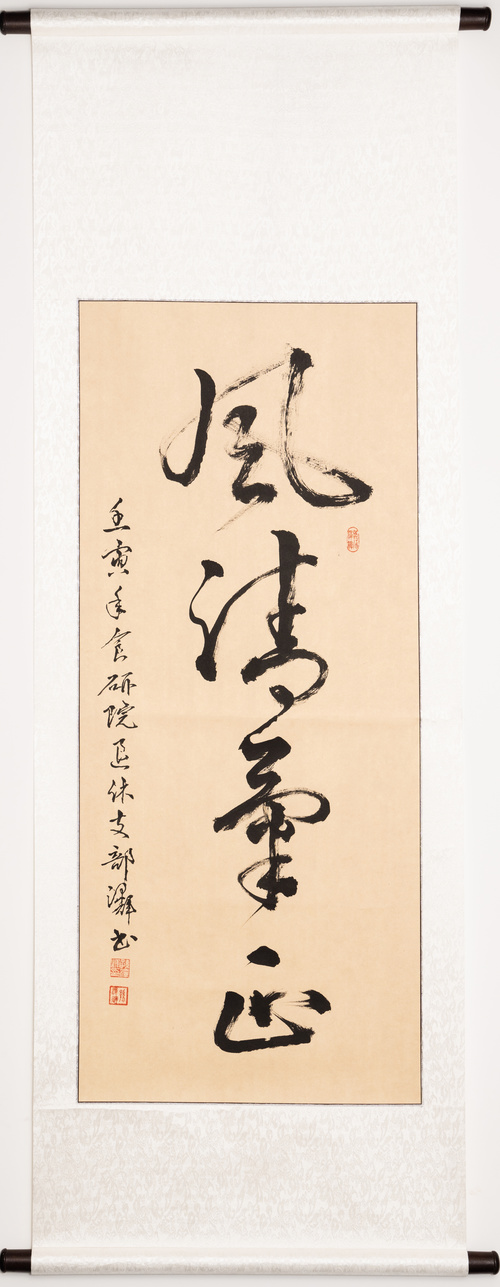 風清氣正
壬寅年食研院退休支部澤书